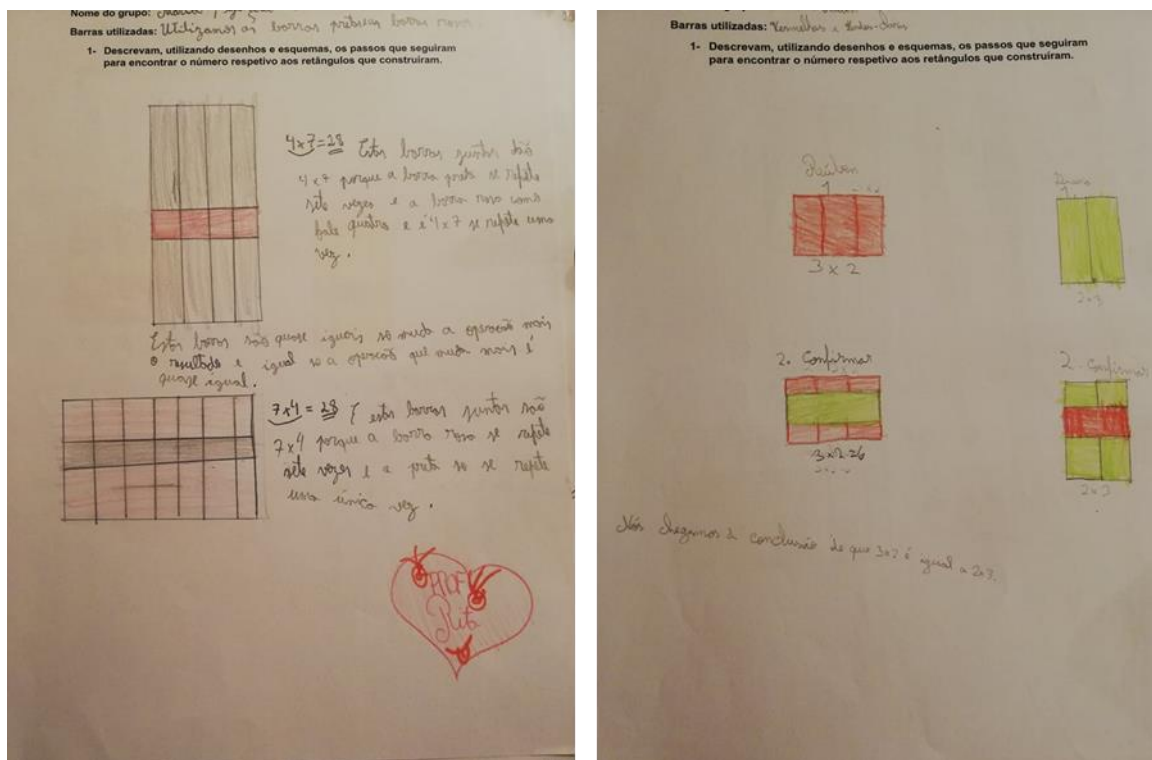 Nome do grupo: Maria
Barras utilizadas: Utilizamos as barras pretas barra rosa
1- Descrevam, utilizando desenhos e esquemas, os passos que seguiram
para encontrar o número respetivo aos retângulos que construíram.
4x7=28 Estas barras juntas são
4x7 porque a barra preta se repete
sete vezes e a barra rosa como
vale quatro e é 4x7 se repete uma
vez.
Estas barras são quase iguais só muda a operação mais
o resultado e igual so a operação que muda mais é
quase igual.
7x4 = 28 estas barras juntas são
7x4 porque a barra rosa se repete
sete vezes e a preta so se repete
uma única vez.
PROF
Rita
Barras utilizadas: Vermelhas e Verdes-claras
1- Descrevam, utilizando desenhos e esquemas, os passos que seguiram
para encontrar o número respetivo aos retângulos que construíram.
Rúben
1
3 x 2
2x3
2. Confirmar
3x2
2. Confirmar
2x3
Nós chegamos à conclusão de que 3x2 é igual a 2x3.